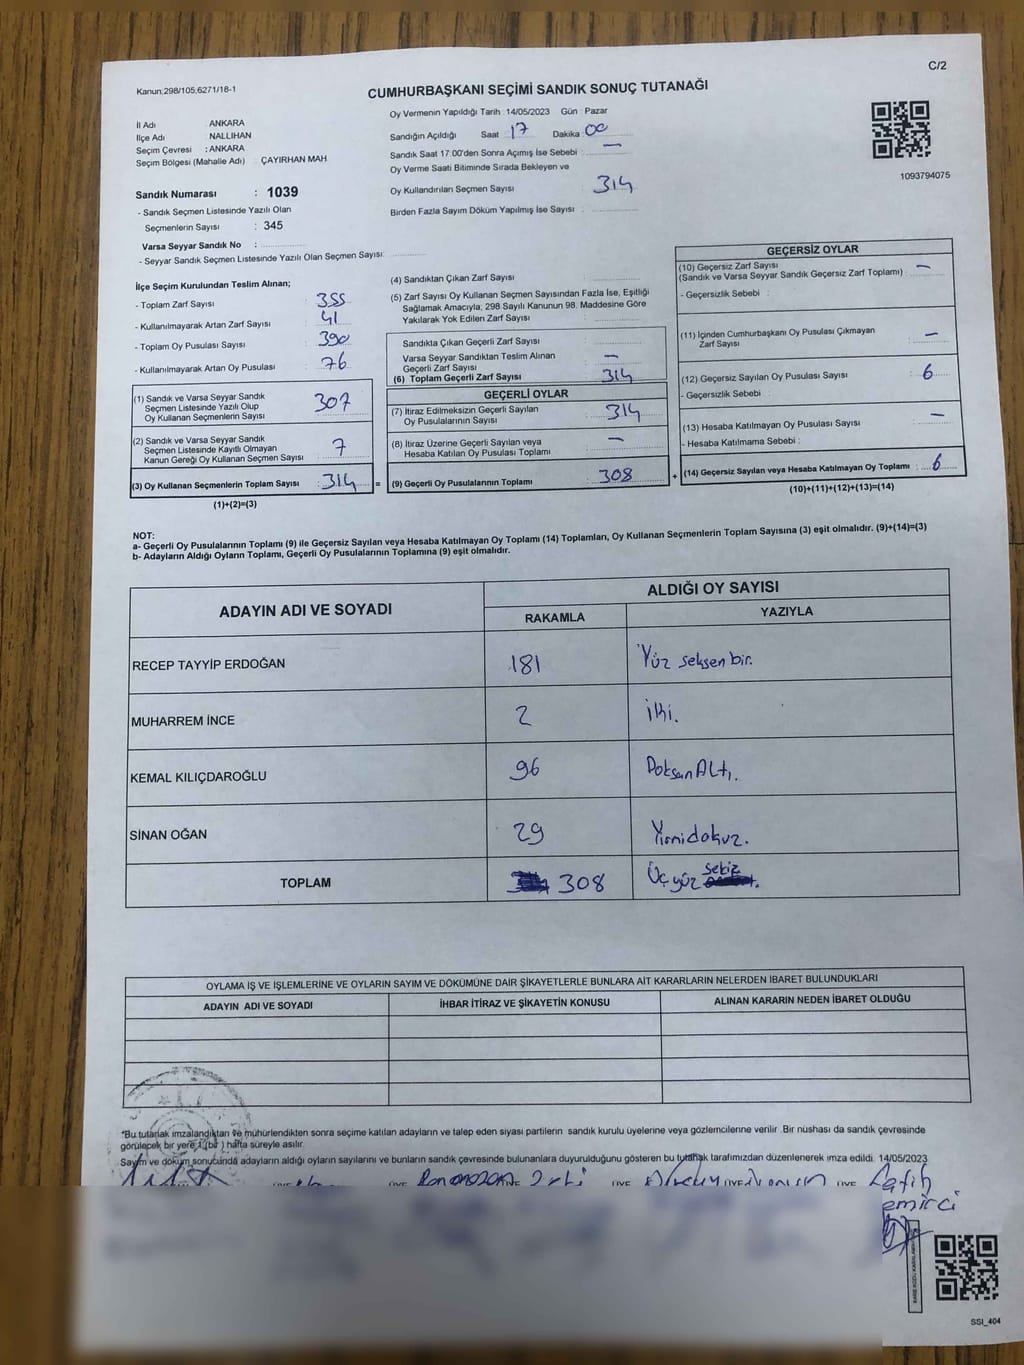 C/2
Kanun;298/105,6271/18-1
CUMHURBAŞKANI SEÇİMİ SANDIK SONUÇ TUTANAĞI
Oy Vermenin Yapıldığı Tarih :14/05/2023 Gün : Pazar
İl Adı : ANKARA
İlçe Adı : NALLIHAN
Seçim Çevresi : ANKARA
Seçim Bölgesi (Mahalle Adı) : ÇAYIRHAN MAH.
Sandığın Açıldığı Saat : 17 Dakika : 00
Sandık Saat 17:00'den Sonra Açımış İse Sebebi : —
Oy Verme Saati Bitiminde Sırada Bekleyen ve
Oy Kullandırılan Seçmen Sayısı : 314
Birden Fazla Sayım Döküm Yapılmış İse Sayısı :
1093794075
Sandık Numarası : 1039
- Sandık Seçmen Listesinde Yazılı Olan
Seçmenlerin Sayısı : 345
Varsa Seyyar Sandık No :
- Seyyar Sandık Seçmen Listesinde Yazılı Olan Seçmen Sayısı:
İlçe Seçim Kurulundan Teslim Alınan;
- Toplam Zarf Sayısı : 355
- Kullanılmayarak Artan Zarf Sayısı : 41
- Toplam Oy Pusulası Sayısı : 390
- Kullanılmayarak Artan Oy Pusulası : 76
(1) Sandık ve Varsa Seyyar Sandık
Seçmen Listesinde Yazılı Olup
Oy Kullanan Seçmenlerin Sayısı : 307
(2) Sandık ve Varsa Seyyar Sandık
Seçmen Listesinde Kayıtlı Olmayan
Kanun Gereği Oy Kullanan Seçmen Sayısı : 7
(3) Oy Kullanan Seçmenlerin Toplam Sayısı : 314 =
(1)+(2)=(3)
(4) Sandıktan Çıkan Zarf Sayısı :
(5) Zarf Sayısı Oy Kullanan Seçmen Sayısından Fazla İse, Eşitliği
Sağlamak Amacıyla, 298 Sayılı Kanunun 98. Maddesine Göre
Yakılarak Yok Edilen Zarf Sayısı :
Sandıkta Çıkan Geçerli Zarf Sayısı :
Varsa Seyyar Sandıktan Teslim Alınan
Geçerli Zarf Sayısı : —
(6) Toplam Geçerli Zarf Sayısı : 314
GEÇERLİ OYLAR
(7) İtiraz Edilmeksizin Geçerli Sayılan
Oy Pusulalarının Sayısı : 314
(8) İtiraz Üzerine Geçerli Sayılan veya
Hesaba Katılan Oy Pusulası Toplamı : —
(9) Geçerli Oy Pusulalarının Toplamı : 308 +
GEÇERSİZ OYLAR
(10) Geçersiz Zarf Sayısı
(Sandık ve Varsa Seyyar Sandık Geçersiz Zarf Toplamı) : —
- Geçersizlik Sebebi :
(11) İçinden Cumhurbaşkanı Oy Pusulası Çıkmayan
Zarf Sayısı : —
(12) Geçersiz Sayılan Oy Pusulası Sayısı : 6
- Geçersizlik Sebebi :
(13) Hesaba Katılmayan Oy Pusulası Sayısı : —
- Hesaba Katılmama Sebebi :
(14) Geçersiz Sayılan veya Hesaba Katılmayan Oy Toplamı : 6
(10)+(11)+(12)+(13)=(14)
NOT:
a- Geçerli Oy Pusulalarının Toplamı (9) ile Geçersiz Sayılan veya Hesaba Katılmayan Oy Toplamı (14) Toplamları, Oy Kullanan Seçmenlerin Toplam Sayısına (3) eşit olmalıdır. (9)+(14)=(3)
b- Adayların Aldığı Oyların Toplamı, Geçerli Oy Pusulalarının Toplamına (9) eşit olmalıdır.
ADAYIN ADI VE SOYADI ALDIĞI OY SAYISI
RAKAMLA YAZIYLA
RECEP TAYYİP ERDOĞAN 181 Yüz seksen bir.
MUHARREM İNCE 2 iki.
KEMAL KILIÇDAROĞLU 96 Doksan Altı.
SİNAN OĞAN 29 Yirmidokuz.
TOPLAM 308 Üç yüz sekiz
OYLAMA İŞ VE İŞLEMLERİNE VE OYLARIN SAYIM VE DÖKÜMÜNE DAİR ŞİKAYETLERLE BUNLARA AİT KARARLARIN NELERDEN İBARET BULUNDUKLARI
ADAYIN ADI VE SOYADI İHBAR İTİRAZ VE ŞİKAYETİN KONUSU ALINAN KARARIN NEDEN İBARET OLDUĞU
*Bu tutanak imzalandıktan ve mühürlendikten sonra seçime katılan adayların ve talep eden siyasi partilerin sandık kurulu üyelerine veya gözlemcilerine verilir .Bir nüshası da sandık çevresinde
görülecek bir yere 1 (bir) hafta süreyle asılır.
Sayım ve döküm sonucunda adayların aldığı oyların sayılarını ve bunların sandık çevresinde bulunanlara duyurulduğunu gösteren bu tutanak tarafımızdan düzenlenerek imza edildi. 14/05/2023
SSI_404